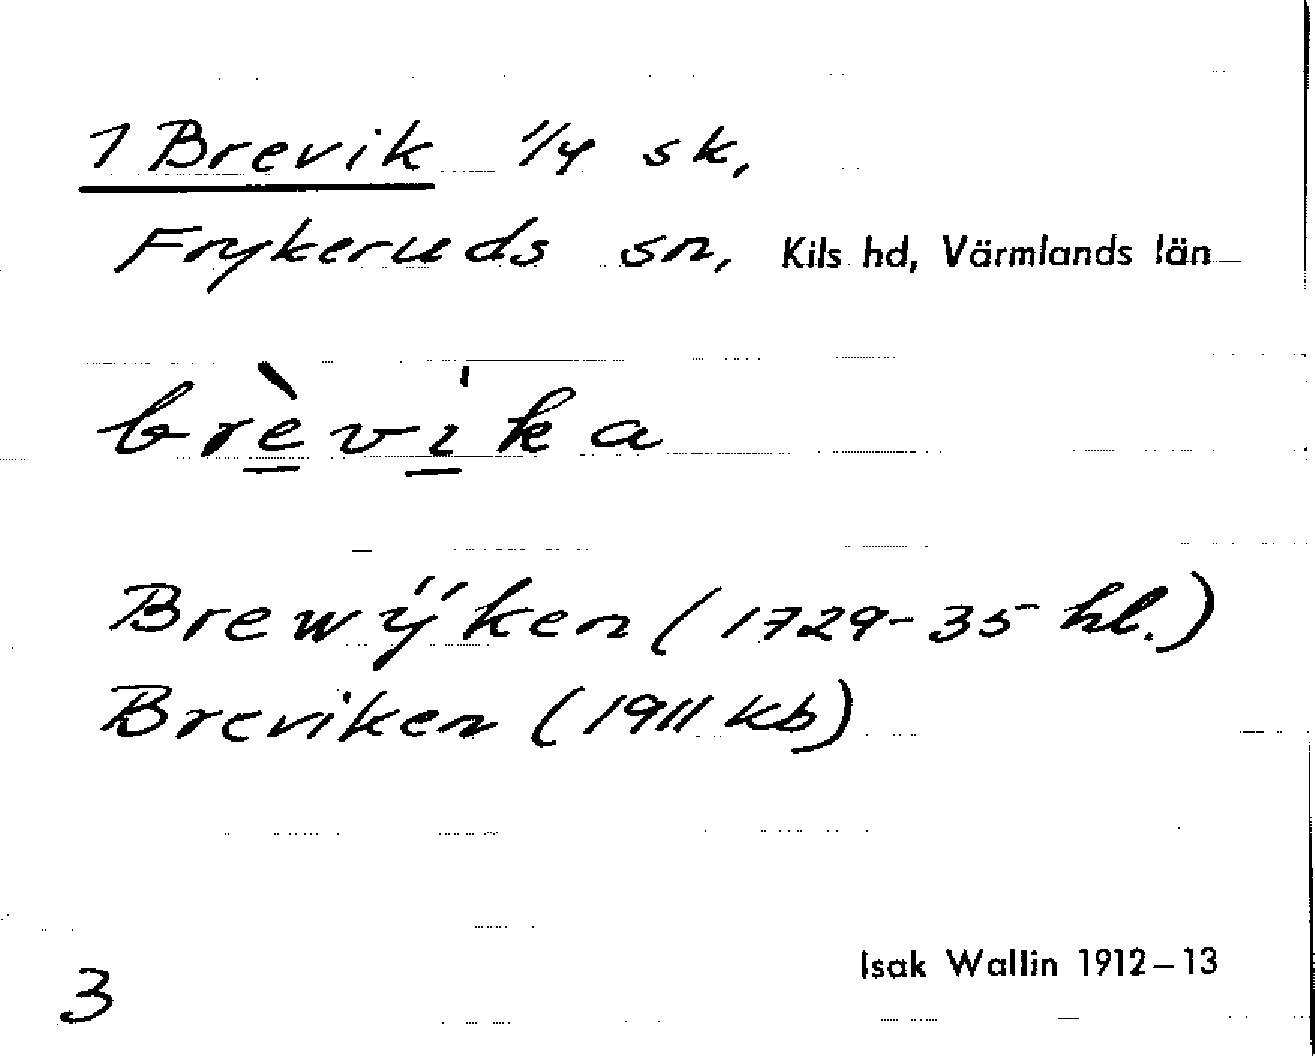 1 Brevik 1/4 sk,
Frykeruds sn, Kils hd, Värmlands län
brèvika
Brewÿken (1729-35 hl.)
Breviken (1911 kb)
3
Isak Wallin 1912–13